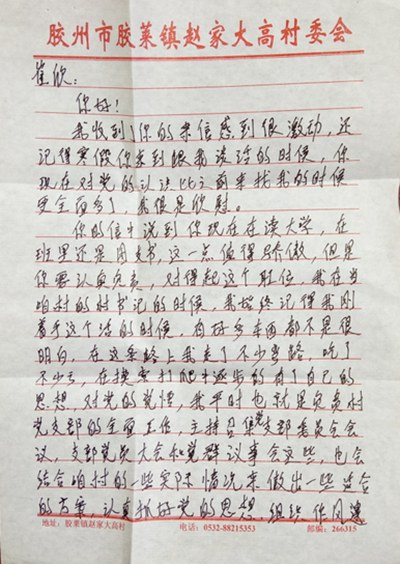 胶州市胶莱镇赵家大高村委会
崔欣：
你好！
我收到了你的来信感到很激动，还
记得寒假你来到跟我谈话的时候，你
现在对党的认识比之前来找我的时候
更全面多了，我很是欣慰。
你的信中说到你现在在读大学，在
班里还是团支书，这一点值得骄傲，但是
你要认真负责，对得起这个职位，我在当
咱村的村书记的时候，我始终记得我刚
着手这个活的时候，有好多东西都不是很
明白，在这条路上我走了不少弯路，吃了
不少亏，在摸索打爬中逐步的有了自己的
思想，对党的觉悟，我平时也就是负责村
党支部的全面工作，主持召集党支部委员会会
议，支部党员大会和党群议事会这些，也会
结合咱村的一些实际情况来做出一些适合
的方案，认真抓好党的思想、组织、作风建
地址：胶莱镇赵家大高村 电话：0532-88215353 邮编：266315